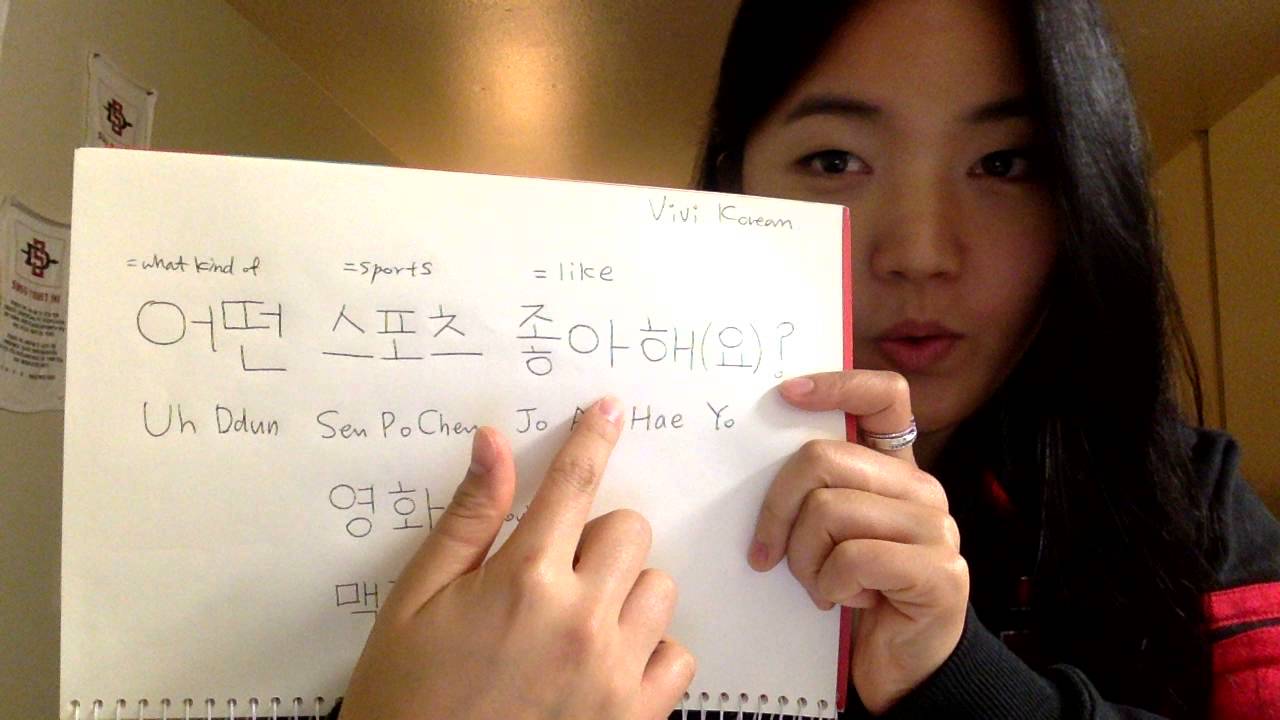 Vivi Korean
=what kind of =sports =like
어떤 스포츠 좋아해(요)?
Uh Ddun Seu Po Cheu Jo Hae Yo
영화